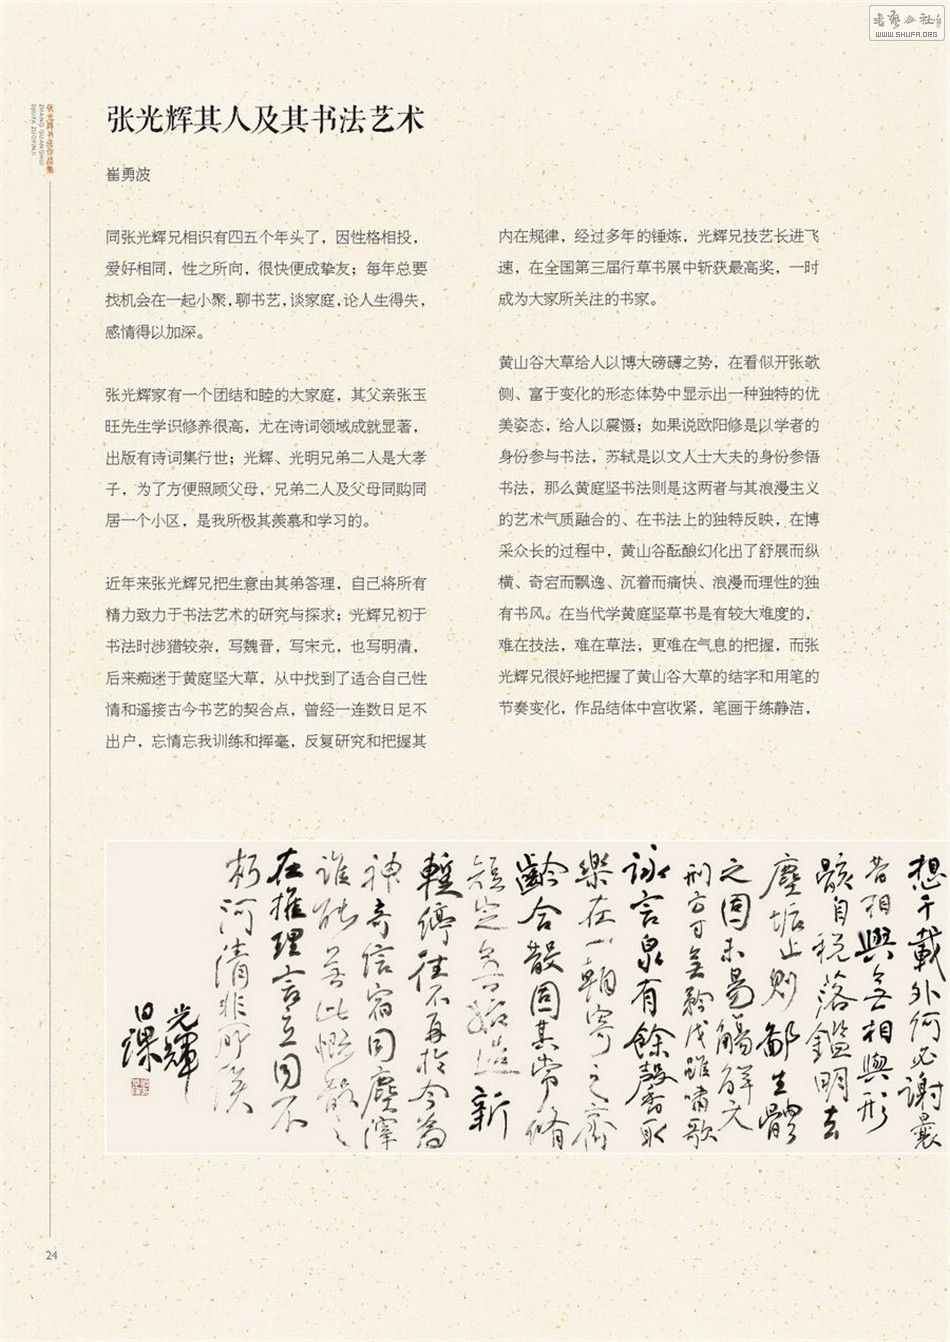 书法公社
WWW.SHUFA.ORG
张光辉书法作品集
ZHANG GUANGHUI
SHUFA ZUOPINJI
张光辉其人及其书法艺术
崔勇波
同张光辉兄相识有四五个年头了，因性格相投，
爱好相同，性之所向，很快便成挚友；每年总要
找机会在一起小聚，聊书艺，谈家庭，论人生得失，
感情得以加深。
张光辉家有一个团结和睦的大家庭，其父亲张玉
旺先生学识修养很高，尤在诗词领域成就显著，
出版有诗词集行世；光辉、光明兄弟二人是大孝
子，为了方便照顾父母，兄弟二人及父母同购同
居一个小区，是我所极其羡慕和学习的。
近年来张光辉兄把生意由其弟答理，自己将所有
精力致力于书法艺术的研究与探求；光辉兄初于
书法时涉猎较杂，写魏晋，写宋元，也写明清，
后来痴迷于黄庭坚大草，从中找到了适合自己性
情和遥接古今书艺的契合点，曾经一连数日足不
出户，忘情忘我训练和挥毫，反复研究和把握其
内在规律，经过多年的锤炼，光辉兄技艺长进飞
速，在全国第三届行草书展中斩获最高奖，一时
成为大家所关注的书家。
黄山谷大草给人以博大磅礴之势，在看似开张欹
侧、富于变化的形态体势中显示出一种独特的优
美姿态，给人以震慑；如果说欧阳修是以学者的
身份参与书法，苏轼是以文人士大夫的身份参悟
书法，那么黄庭坚书法则是这两者与其浪漫主义
的艺术气质融合的、在书法上的独特反映，在博
采众长的过程中，黄山谷酝酿幻化出了舒展而纵
横、奇宕而飘逸、沉着而痛快、浪漫而理性的独
有书风。在当代学黄庭坚草书是有较大难度的，
难在技法，难在草法；更难在气息的把握，而张
光辉兄很好地把握了黄山谷大草的结字和用笔的
节奏变化，作品结体中宫收紧，笔画干练静洁，
想千載外何必謝曩
昔相與無相與形
骸自脱落鑑明去
塵垢止則鄙生體
之固未易觸解无
刑方寸
矜伐雖嘯歌
詠言泉有餘馨取
樂在一朝寄之齊
齡合散固其常脩
短定無始造新
輕停往不再於今為
神奇信宿同塵滓
誰能無此慨散之
在推理言立同不
朽河清非所俟
光輝
日課
24